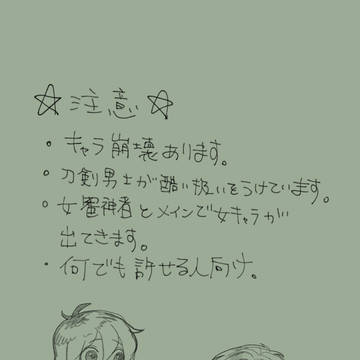 ☆注意☆
・キャラ崩壊あります。
・刀剣男士が酷い扱いをうけています。
・女審神者とメインで女キャラが
出てきます。
・何でも許せる人向け。